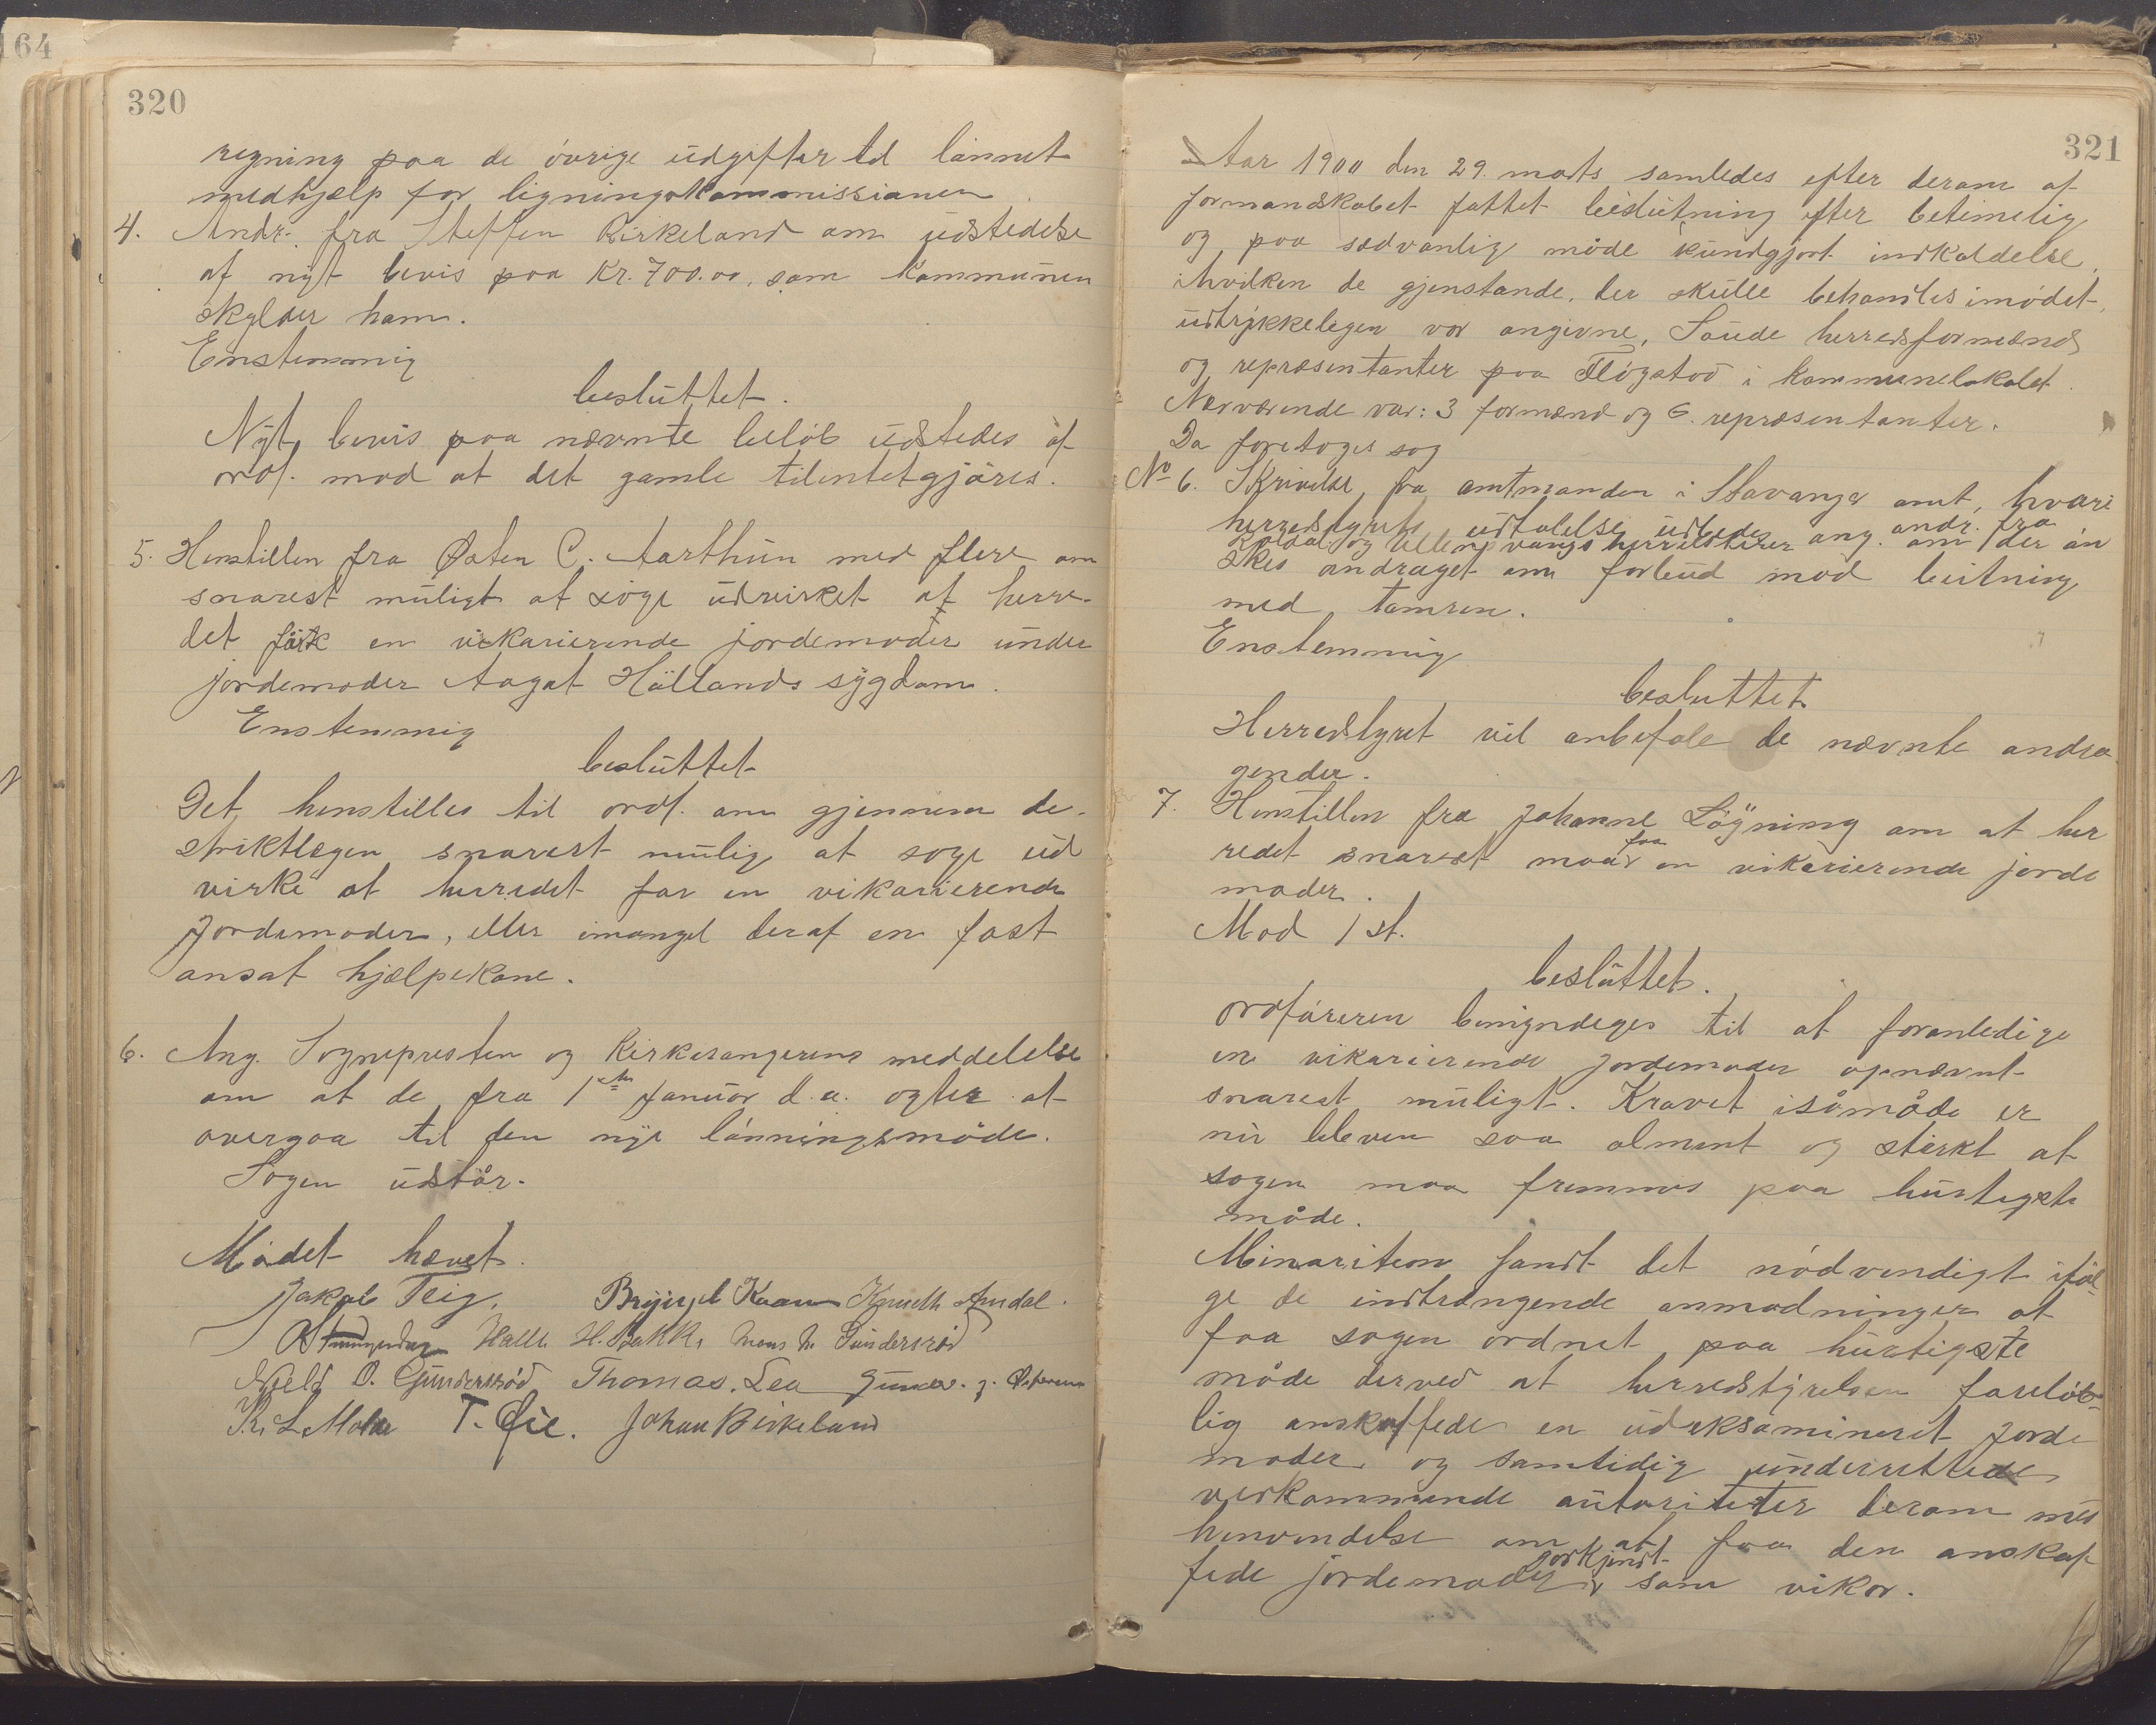 164
320
regning paa de øvrige udgifter til lønnet
medhjælp for ligningskommissionen.
4. Andr. fra Steffen Birkeland om udstedelse
af nyt bevis paa Kr. 700.00, som kommunen
skylder ham.
Enstemmig
besluttet.
Nyt bevis paa nævnte beløb udstedes af
ordf. mod at det gamle tilintetgjøres.
5. Henstillen fra Østen C. Aarthun med flere om
snarest muligt at søge udvirket at herre-
det fik en vikarierende jordemoder under
jordemoder Aagat Høllands sygdom.
Enstemmig
besluttet
Det henstilles til ordf. om gjennem de-
striktlægen snarest mulig at søge ud
virke at herredet far en vikarierende
Jordemoder, eller imangel deraf en fast
ansat hjælpekone.
6. Ang. Sognepresten og Kirkesangerens meddelelse
om at de fra 1ste Januar d.a. agter at
overgaa til den nye lønningsmåde.
Sagen udstår.
Mødet hævet.
Jakob Teig, Brynjel Kaan Knudt Amdal.
Halle H. Bakke Mons M. Gundersrød
Njeld O. Gundersrød Thomas. Lea Gunder. J.
K. L. Molde T. Øie. Johan Birkeland
321
Aar 1900 den 29. marts samledes efter derom af
formandskabet fattet beslutning efter betimelig
og paa sædvanlig måde kundgjort indkaldelse,
ihvilken de gjenstande, der skulle behandles imødet,
udtrykkeligen var angivne, Saude herredsformænd
og repræsentanter paa Fløgstad i kommunelokalet.
Nærværende var: 3 formænd og 6. repræsentanter.
Da foretoges sag
No 6. Skrivelse fra amtmanden i Stavanger amt, hvori
herredstyrets udtalelse udbedes ang. andr. fra
Røldal og Ullensvangs herredstyrer om der øn
skes andraget om forbud mod beitning
med tamren.
Enstemmig
besluttet
Herredstyret vil anbefale de nævnte andra
gender.
7. Henstillen fra Johanne Løgning om at her
redet snarest maa faa en vikarierende jorde
moder.
Mod 1 st.
besluttet.
ordføreren bemyndeges til at foranledige
en vikarierende Jordemoder opnævnt
snarest muligt. Kravet isåmåde er
nu bleven saa alment og stærkt at
sagen maa fremmes paa hurtigste
måde.
Minoriteten fandt det nødvendigt iføl-
ge de indtrængende anmodninger at
faa sagen ordnet paa hurtigste
måde derved at herredstyrelsen foreløb-
lig anskaffede en udeksamineret Jorde
moder og samtidig underrettede
vedkommende autoriteter derom med
henvendelse om at faa den anskaf
fede jordemoder godkjendt som vikar.